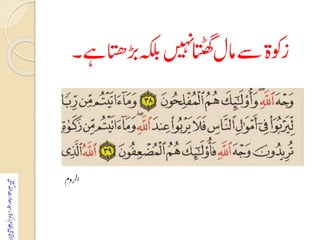 زکوۃ سے مال گھٹتا نہیں بلکہ بڑھتا ہے۔
وَجْهَ ٱللَّهِ وَأُو۟لَٰٓئِكَ هُمُ ٱلْمُفْلِحُونَ ٣٨ وَمَآ ءَاتَيْتُم مِّن رِّبًا
لِّيَرْبُوَا۟ فِىٓ أَمْوَٰلِ ٱلنَّاسِ فَلَا يَرْبُوا۟ عِندَ ٱللَّهِ وَمَآ ءَاتَيْتُم مِّن زَكَوٰةٍ
تُرِيدُونَ وَجْهَ ٱللَّهِ فَأُو۟لَٰٓئِكَ هُمُ ٱلْمُضْعِفُونَ ٣٩ ٱللَّهُ ٱلَّذِى
الروم